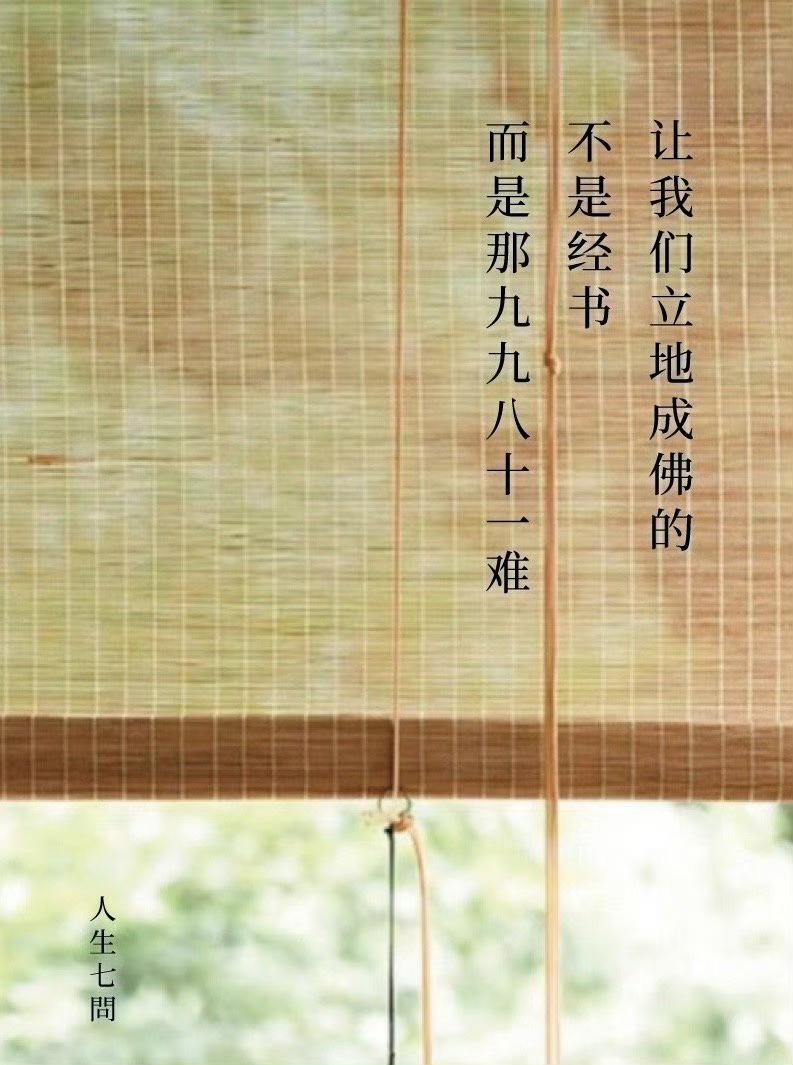 让我们立地成佛的
不是经书
而是那九九八十一难
人生七問